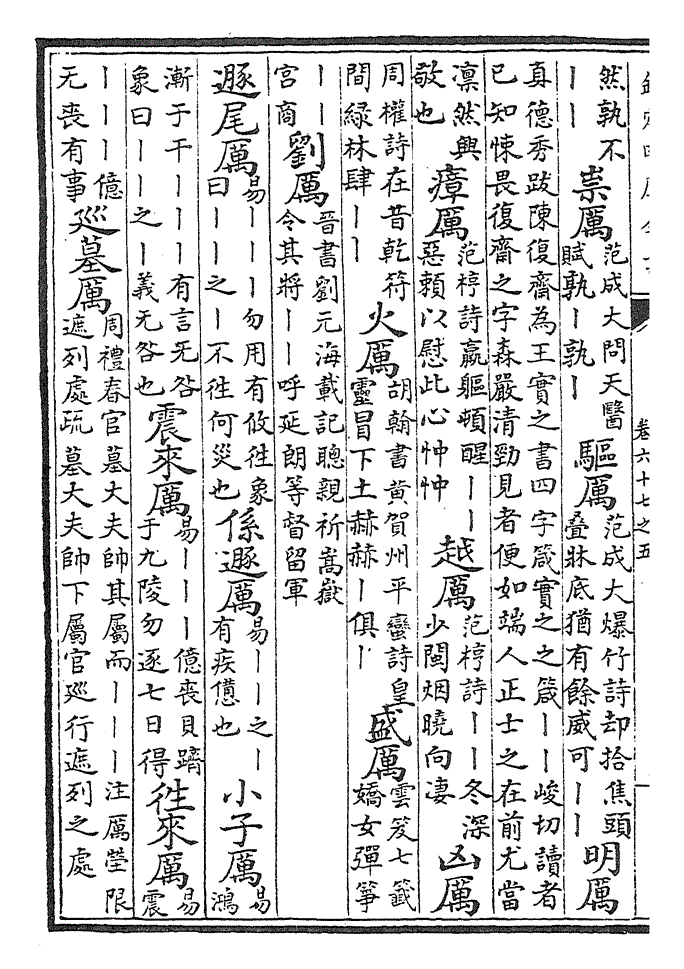 卷六十七之五
然孰不
丨丨
祟厲
范成大問天醫
賦孰丨孰丨
驅厲
范成大爆竹詩却拾焦頭
叠牀底猶有餘威可丨丨
明厲
真德秀跋陳復齋為王實之書四字箴實之之箴丨丨峻切讀者
已知悚畏復齋之字森嚴清勁見者便如端人正士之在前尤當
凛然興
敬也
瘴厲
范梈詩羸軀頓醒丨丨
惡賴以慰此心忡忡
越厲
范梈詩丨丨冬深
少閩烟曉向凄
凶厲
周權詩在昔乾符
間緑林肆丨丨
火厲
胡翰書黄賀州平蠻詩皇
靈冒下土赫赫丨俱丨
盛厲
雲笈七籤
嬌女彈箏
丨丨
宫商
劉厲
晉書劉元海載記聰親祈嵩嶽
令其將丨丨呼延朗等督留軍
遯尾厲
易丨丨丨勿用有攸往象
曰丨丨之丨不往何災也
係遯厲
易丨丨之丨
有疾憊也
小子厲
易
鴻
漸于干丨丨丨有言无咎
象曰丨丨之丨義无咎也
震來厲
易丨丨丨億喪貝躋
于九陵勿逐七日得
往來厲
易
震
丨丨丨億
无喪有事
巡墓厲
周禮春官墓大夫帥其屬而丨丨丨注厲塋限
遮列處疏墓大夫帥下屬官巡行遮列之處